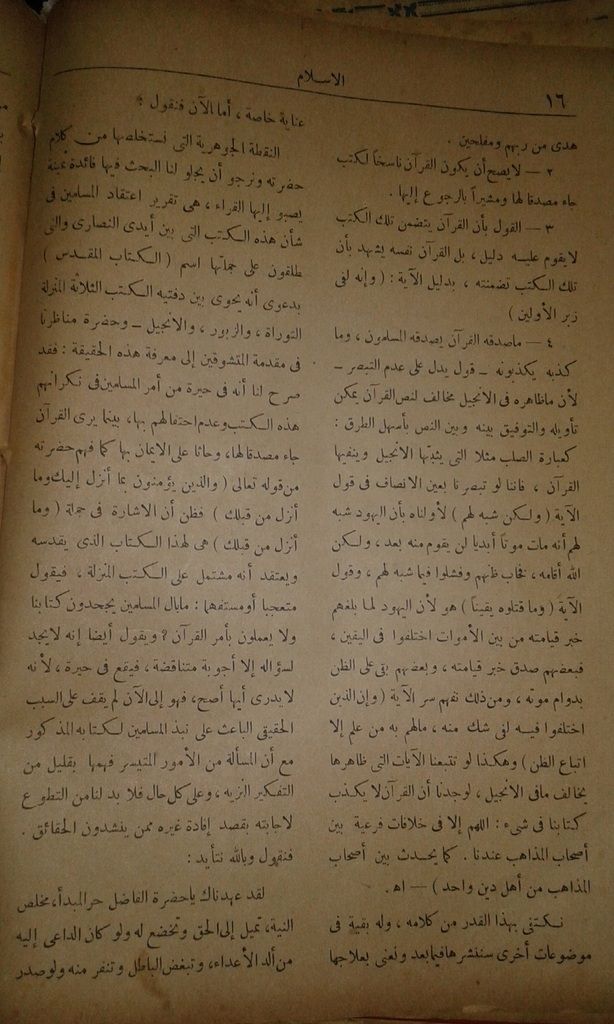 ١٦
الاسلام
هدى من ربهم ومفلحين .
٢ — لا يصح أن يكون القرآن ناسخاً لكتب
جاء مصدقا لها ومشيراً بالرجوع إليها .
٣ — القول بأن القرآن يتضمن تلك الكتب
لا يقوم عليه دليل ، بل القرآن نفسه يشهد بأن
تلك الكتب تضمنته ، بدليل الآية : ( وإنه لفى
زبر الأولين )
٤ — ما صدقه القرآن يصدقه المسلمون ، وما
كذبه يكذبونه — قول يدل على عدم التبصر —
لأن ماظاهره فى الانجيل مخالف لنص القرآن يمكن
تأويله والتوفيق بينه وبين النص بأسهل الطرق :
كعبارة الصلب مثلا التى يثبتها الانجيل وينفيها
القرآن ، فاننا لو تبصرنا بعين الانصاف فى قول
الآية ( ولكن شبه لهم ) لأولناه بأن اليهود شبه
لهم أنه مات موتاً أبديا لن يقوم منه بعد ، ولكن
الله أقامه ، فخاب ظنهم وفشلوا فيما شبه لهم ، وقول
الآية ( وما قتلوه يقيناً ) هو لأن اليهود لما بلغهم
خبر قيامته من بين الأموات اختلفوا فى اليقين ،
فبعضهم صدق خبر قيامته ، وبعضهم بقى على الظن
بدوام موته ، ومن ذلك نفهم سر الآية ( وإن الذين
اختلفوا فيه لفى شك منه ، مالهم به من علم إلا
اتباع الظن ) وهكذا لو تتبعنا الآيات التى ظاهرها
يخالف مافى الانجيل ، لوجدنا أن القرآن لا يكذب
كتابنا فى شىء : اللهم إلا فى خلافات فرعية بين
أصحاب المذاهب عندنا . كما يحدث بين أصحاب
المذاهب من أهل دين واحد ) — اهـ .
نكتفى بهذا القدر من كلامه ، وله بقية فى
موضوعات أخرى سننشرها فيما بعد ونعنى بعلاجها
عناية خاصة ، أما الآن فنقول :
النقطة الجوهرية التى نستخلصها من كلام
حضرته ونرجو أن يجلو لنا البحث فيها فائدة ثمينة
يصبو إليها القراء ، هى تقرير اعتقاد المسلمين فى
شأن هذه الكتب التى بين أيدى النصارى والتى
يطلقون على جملتها اسم ( الكتاب المقدس )
بدعوى أنه يحوى بين دفتيه الكتب الثلاثة المنزلة
التوراة ، والزبور ، والانجيل — وحضرة مناظرنا
فى مقدمة المتشوقين إلى معرفة هذه الحقيقة : فقد
صرح لنا أنه فى حيرة من أمر المسلمين فى نكرانهم
هذه الكتب وعدم احتفالهم بها ، بينما يرى القرآن
جاء مصدقا لها ، وحاثا على الايمان بها كما فهم حضرته
من قوله تعالى ( والذين يؤمنون بما أنزل إليك وما
أنزل من قبلك ) فظن أن الاشارة فى جملة ( وما
أنزل من قبلك ) هى لهذا الكتاب الذى يقدسه
ويعتقد أنه مشتمل على الكتب المنزلة ، فيقول
متعجبا أو مستفهما : مابال المسلمين يجحدون كتابنا
ولا يعملون بأمر القرآن ؟ ويقول أيضا إنه لايجد
لسؤاله إلا أجوبة متناقضة ، فيقع فى حيرة ، لأنه
لايدرى أيها أصح ، فهو إلى الآن لم يقف على السبب
الحقيقى الباعث على نبذ المسلمين لكتابه المذكور
مع أن المسألة من الأمور المتيسر فهمها بقليل من
التفكير النزيه ، وعلى كل حال فلا بد لنا من التطوع
لاجابته بقصد إفادة غيره ممن ينشدون الحقائق .
فنقول وبالله نتأيد :
لقد عهدناك ياحضرة الفاضل حر المبدأ ، مخلص
النية ، تميل إلى الحق وتخضع له ولو كان الداعى إليه
من ألد الأعداء ، وتبغض الباطل وتنفر منه ولو صدر